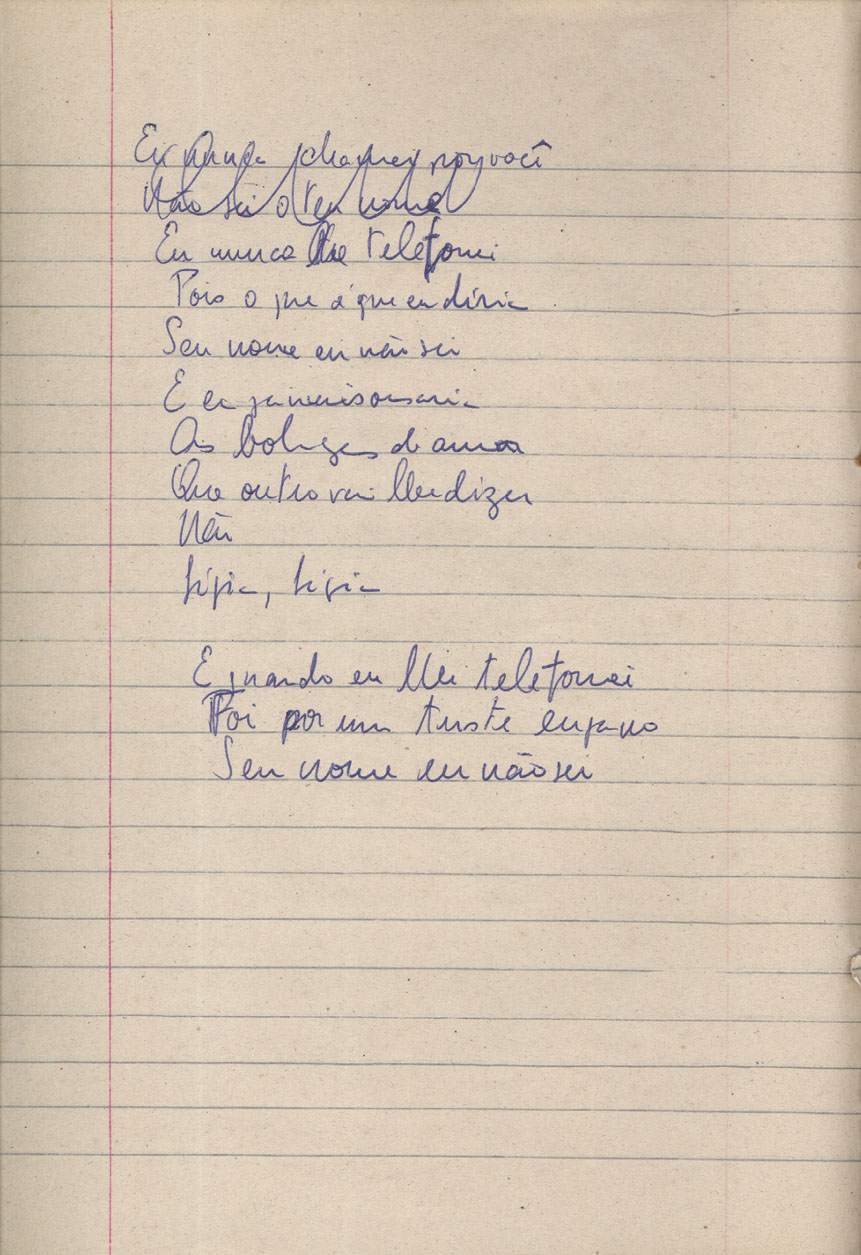 Eu nunca chamei por você
Não sei o teu nome
Eu nunca lhe telefonei
Pois o que é que eu diria
Seu nome eu não sei
E eu jamais ousaria
As bobagens de amor
Que outro vai lhe dizer
Não
Lígia, Lígia
E quando eu lhe telefonei
Foi por um triste engano
Seu nome eu não sei